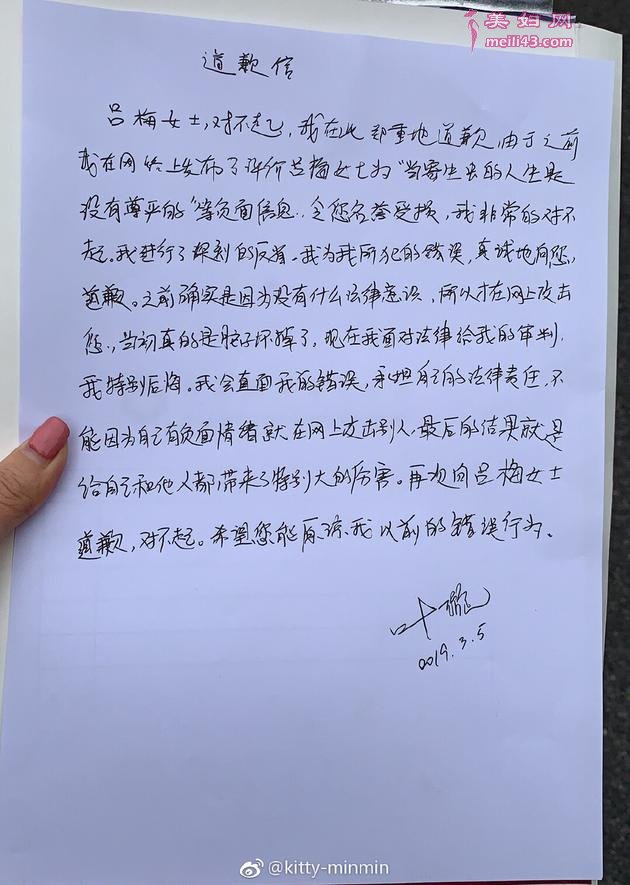 美妇网
meili43.com
道歉信
吕梅女士,对不起,我在此郑重地道歉,由于之前
我在网络上发布了评价吕梅女士为"当寄生虫的人生是
没有尊严的"等负面信息,令您名誉受损,我非常的对不
起。我进行了深刻的反省,我为我所犯的错误,真诚地向您,
道歉。之前确实是因为没有什么法律意识,所以才在网上攻击
您,当初真的是脑子坏掉了,现在我面对法律给我的审判,
我特别后悔。我会直面我的错误,承担自己的法律责任,不
能因为自己有负面情绪就在网上攻击别人,最后的结果就是
给自己和他人都带来了特别大的伤害。再次向吕梅女士
道歉,对不起。希望您能原谅我以前的错误行为。
叶璇
2019.3.5
@kitty-minmin